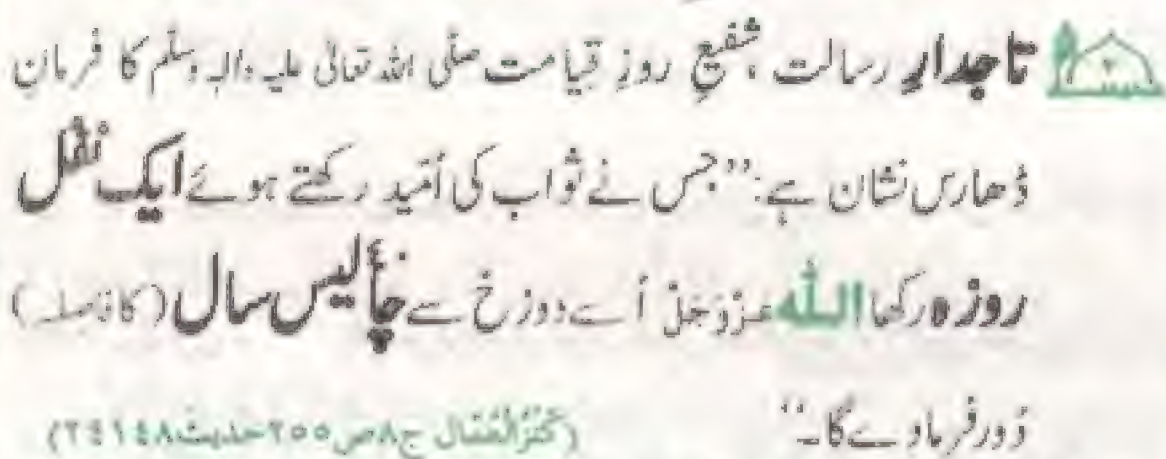 تاجدارِ رسالت، شفیعِ روزِ قیامت صلَّی اللہ تعالٰی علیہ واٰلہٖ وسلَّم کا فرمانِ
ڈھارس نشان ہے: ’’جس نے ثواب کی اُمّید رکھتے ہوئے ایک نفل
روزہ رکھا اللہ عَزَّوَجَلَّ اُسے دوزخ سے چالیس سال (کا فاصلہ)
دُور فرما دے گا۔‘‘ (کَنْزُ الْعُمّال ج۸ ص۲۵۵ حدیث ۲٤۱٤۸)